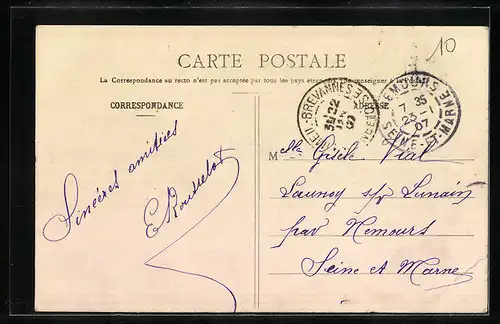 10
CARTE POSTALE
La Correspondance au recto n'est pas acceptée par tous les pays étrangers. Se renseigner à la Poste
CORRESPONDANCE
ADRESSE
LIMEIL-BREVANNES SEINE ET OISE
22
07
NEMOURS SEINE-ET-MARNE
7 35
23
07
Sincères amitiés
E Rousselot
Mlle Gisèle Vial
Launoy s/ Lunain
par Nemours
Seine et Marne